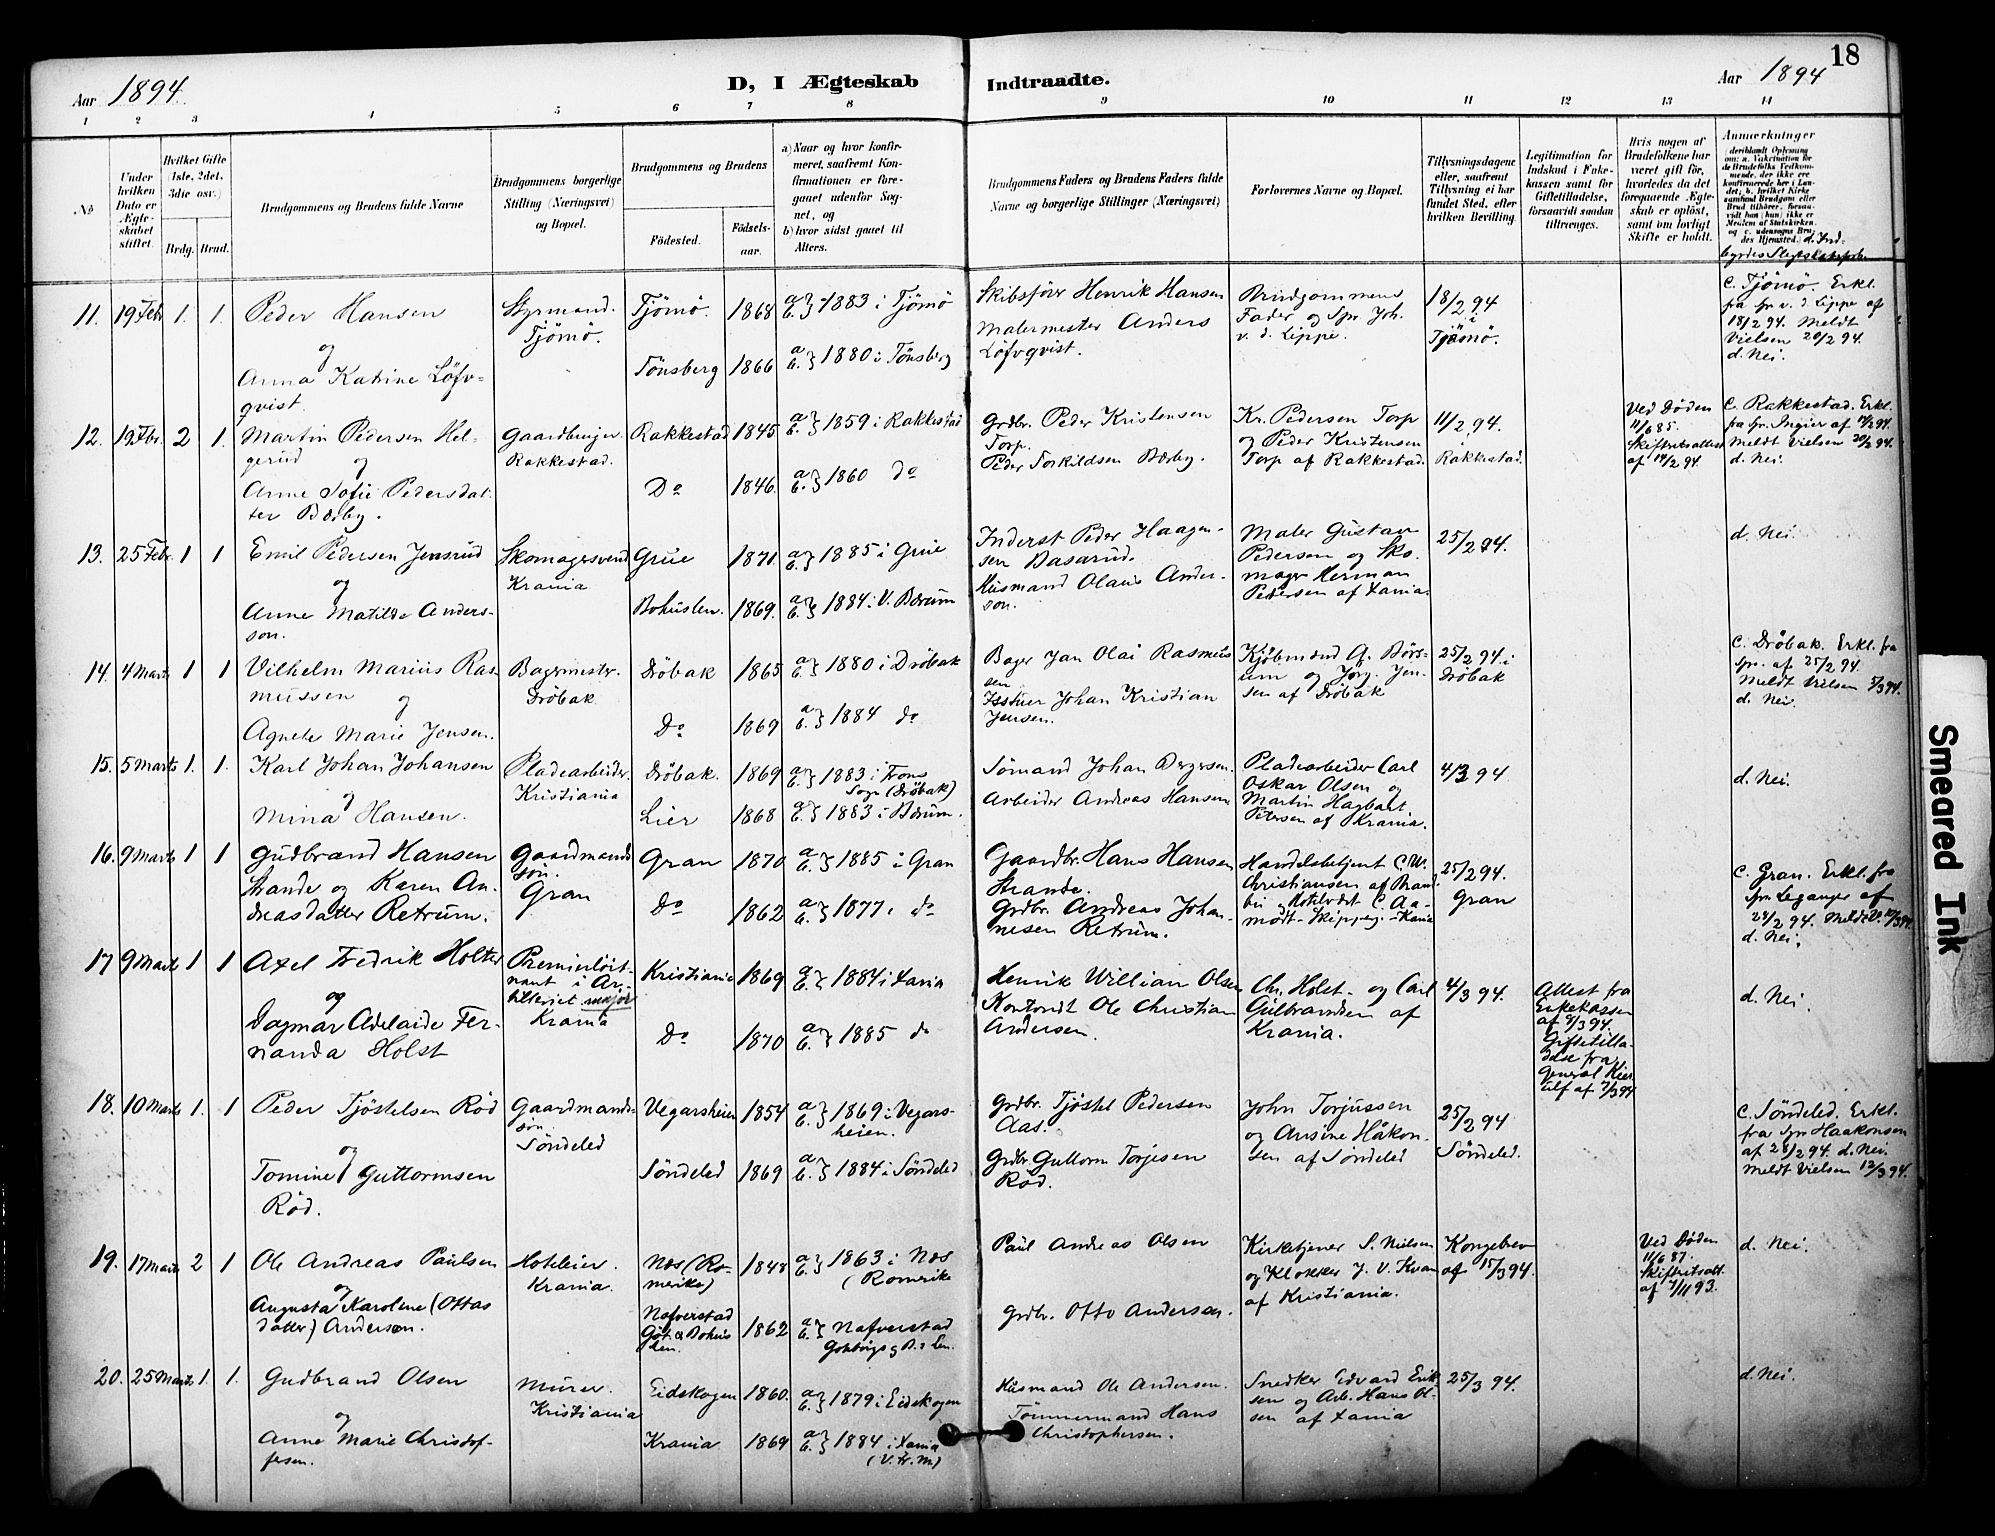 18
Aar 1894.
D, I Ægteskab Indtraadte.
Aar 1894
1 2 3 4 5 6 7 8 9 10 11 12 13 14
No
Under hvilken Dato er Ægteskabet stiftet.
Hvilket Gifte (1ste, 2det, 3die osv.)
Brdg. Brud.
Brudgommens og Brudens fulde Navne
Brudgommens borgerlige Stilling (Næringsvei) og Bopæl.
Brudgommens og Brudens
Fødested.
Fødselsaar.
a) Naar og hvor konfirmeret, saafremt Konfirmationen er foregaaet udenfor Sognet, og
b) hvor sidst gaaet til Alters.
Brudgommens Faders og Brudens Faders fulde Navne og borgerlige Stillinger (Næringsvei)
Forlovernes Navne og Bopæl.
Tillysningsdagene eller, saafremt Tillysning ei har fundet Sted, efter hvilken Bevilling.
Legitimation for Indskud i Enkekassen samt for Giftetilladelse, forsaavidt saadan tiltrænges.
Hvis nogen af Brudefolkene har været gift før, hvorledes da det foregaaende Ægteskab er opløst, samt om lovligt Skifte er holdt.
Anmerkninger
(deriblandt Oplysning om: a. Vakcination for de Brudefolks Vedkommende, der ikke ere konfirmerede her i Landet; b. hvilket Kirkesamfund Brudgom eller Brud tilhører, forsaavidt han (hun) ikke er Medlem af Statskirken, og c. udensogns Brudes Hjemsted.)
11. 19 Febr 1. 1. Peder Hansen
og
Anna Katrine Löfvqvist.
Styrmand. Tjömö.
Tjömö. 1868 a. b. } 1883 i Tjömö
Tönsberg 1866 a b. } 1880 i Tönsberg
Skibsförer Henrik Hansen
Malermester Anders Löfvqvist.
Brudgommens Fader og Spr Joh. v. d. Lippe.
18/2 94 i Tjömö.
C. Tjömö. Erkl. fra Spr v. d. Lippe af 18/2 94. Meldt Vielsen 20/2 94. d. Nei.
12. 19 Fbr. 2 1. Martin Pedersen Helgerud og
Anne Sofie Pedersdatter Bærby.
Gaardbruger. Rakkestad.
Rakkestad 1845 a b. } 1859 i Rakkestad
Do 1846. a b. } 1860 do
Grdbr. Peder Kristensen Torp.
Peder Torkildsen Bærby.
Kr. Pedersen Torp og Peder Kristensen Torp af Rakkestad.
11/2 94. i Rakkestad.
Ved Døden 11/6 85. Skifteretsattest af 14/2 94.
C. Rakkestad. Erkl. fra Spr. Ingier af 14/2 94. Meldt Vielsen 20/2 94. d. Nei.
13. 25 Febr. 1 1 Emil Pedersen Jensrud
og
Anne Matilde Andersson.
Skomagersvend Krania
Grue 1871. a b. } 1885 i Grue
Bohuslen. 1869. a b. } 1884 i V. Bærum
Inderst Peder Haagensen Basarud.
Husmand Olaus Anderson.
Maler Gustav Pedersen og Skomager Herman Pedersen af Xania.
25/2 94.
d. Nei.
14. 4 Marts 1 1 Vilhelm Marius Rasmussen og
Agnete Marie Jensen.
Bagermester. Dröbak
Dröbak 1865 a b. } 1880 i Dröbak
Do 1869 a b. } 1884 do
Bager Jan Olai Rasmussen
Johan Kristian Jensen.
Kjöbmand A. Börsum og Jörg. Jensen af Dröbak
25/2 94. i Dröbak
C. Dröbak. Erkl. fra Spr. af 25/2 94. Meldt Vielsen 5/3 94. d. Nei.
15. 5 Marts 1. 1. Karl Johan Johansen
og
Mina Hansen.
Pladearbeider. Kristiania
Dröbak. 1869 a b. } 1883 i Frons Sogn (Dröbak)
Lier 1868 a b. } 1883 i Bærum.
Sömand Johan Bergersen.
Arbeider Andreas Hansen
Pladearbeider Carl Oskar Olsen og Martin Hagbart Petersen af Krania.
4/3 94
d. Nei.
16. 9 Marts 1 1 Gudbrand Hansen Strande og Karen Andreasdatter Retrum.
Gaardmandssön. Gran
Gran 1870 a b. } 1885 i Gran
Do 1862 a b. } 1877 i do
Gaardbr. Hans Hansen Strande.
Grdbr. Andreas Johannesen Retrum.
Handelsbetjent C. W. Christiansen af Brandbu og C. Aamodt - Skipperg. - Xania
25/2 94. Gran
C. Gran. Erkl. fra Spr. Leganger af 28/2 94. Meldt V. 10/3 94. d. Nei.
17 9 Marts 1 1 Axel Fredrik Holter
og
Dagmar Adelaide Fernanda Holst
Premierlöitnant i Artilleriet major Krania
Kristiania 1869 a b. } 1884 i Xania
Do 1870 a b. } 1885 do
Henrik William Olsen
Kontorist Ole Christian Andersen.
Chr. Holst - og Carl Gulbrandsen af Krania.
4/3 94.
Attest fra Enkekassen af 8/3 94. Giftetilladelse fra General Kierulf af 7/3 94
d. Nei.
18. 10 Marts 1. 1 Peder Tjöstelsen Röd
og
Tomine Guttormsen Röd.
Gaardmandssön. Söndeled
Vegarsheien 1854 a b. } 1869 i Vegarsheien.
Söndeled 1869 a b. } 1884 i Söndeled
Grdbr. Tjöstel Pedersen Aas.
Grdbr Guttorm Torjesen Röd.
John Torjussen og Ansine Håkonsen af Söndeled
25/2 94 Söndeled.
C. Söndeled. Erkl. fra Spr Haakonsen af 28/2 94. d. Nei. Meldt Vielsen 12/3 94.
19. 17 Marts 2 1 Ole Andreas Paulsen
og
Augusta Karoline (Ottosdatter) Anderson.
Hoteleier. Krania.
Næs (Romerike) 1848 a b. } 1863 i Næs (Romerike
Nafverstad Göt. & Bohus Len. 1862 a b. } Nafverstad Göteborgs og B.s Len.
Paul Andreas Olsen
Grdbr. Otto Anderson.
Kirketjener S. Nielsen og Klokker J. V. Kvam af Kristiania.
Kongebrev af 15/3 94.
Ved Døden 11/6 87. Skifteretsatt. af 7/11 93.
d. Nei.
20. 25 Marts 1. 1. Gudbrand Olsen
og
Anne Marie Christoffersen.
Murer. Kristiania
Eidskogen 1860. a b. } 1879 i Eidskogen
Krania 1869 a b. } 1884 i Xania (V. Fr. M.)
Husmand Ole Andersen.
Tömmermand Hans Christophersen.
Snedker Edvard Eriksen og Arb. Hans Olsen af Xania
25/3 94.
d. Nei.
Smeared Ink